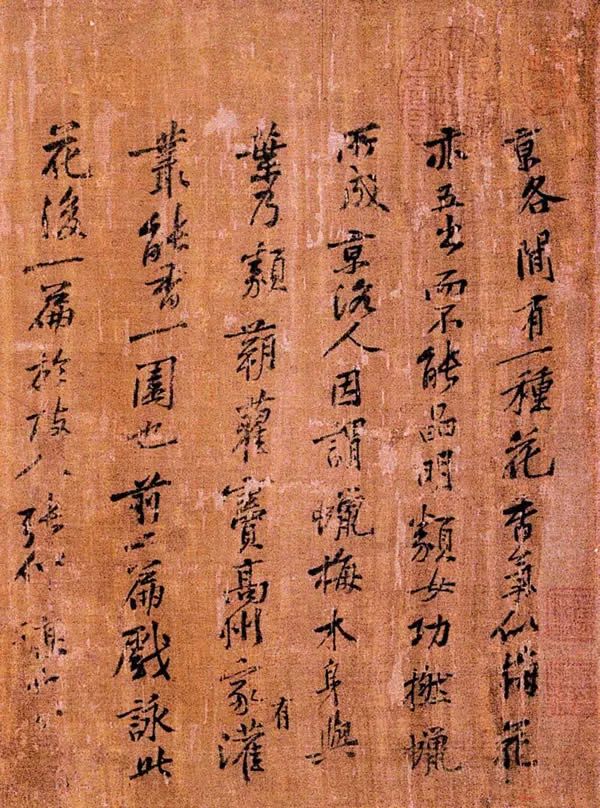 京洛間有一種花香氣似梅花
亦五出而不能晶明類女功撚蠟
所成京洛人因謂蠟梅木身與
葉乃類蒴藋竇高州家有灌
叢能香一園也前二篇戲詠此
花後一篇於故人